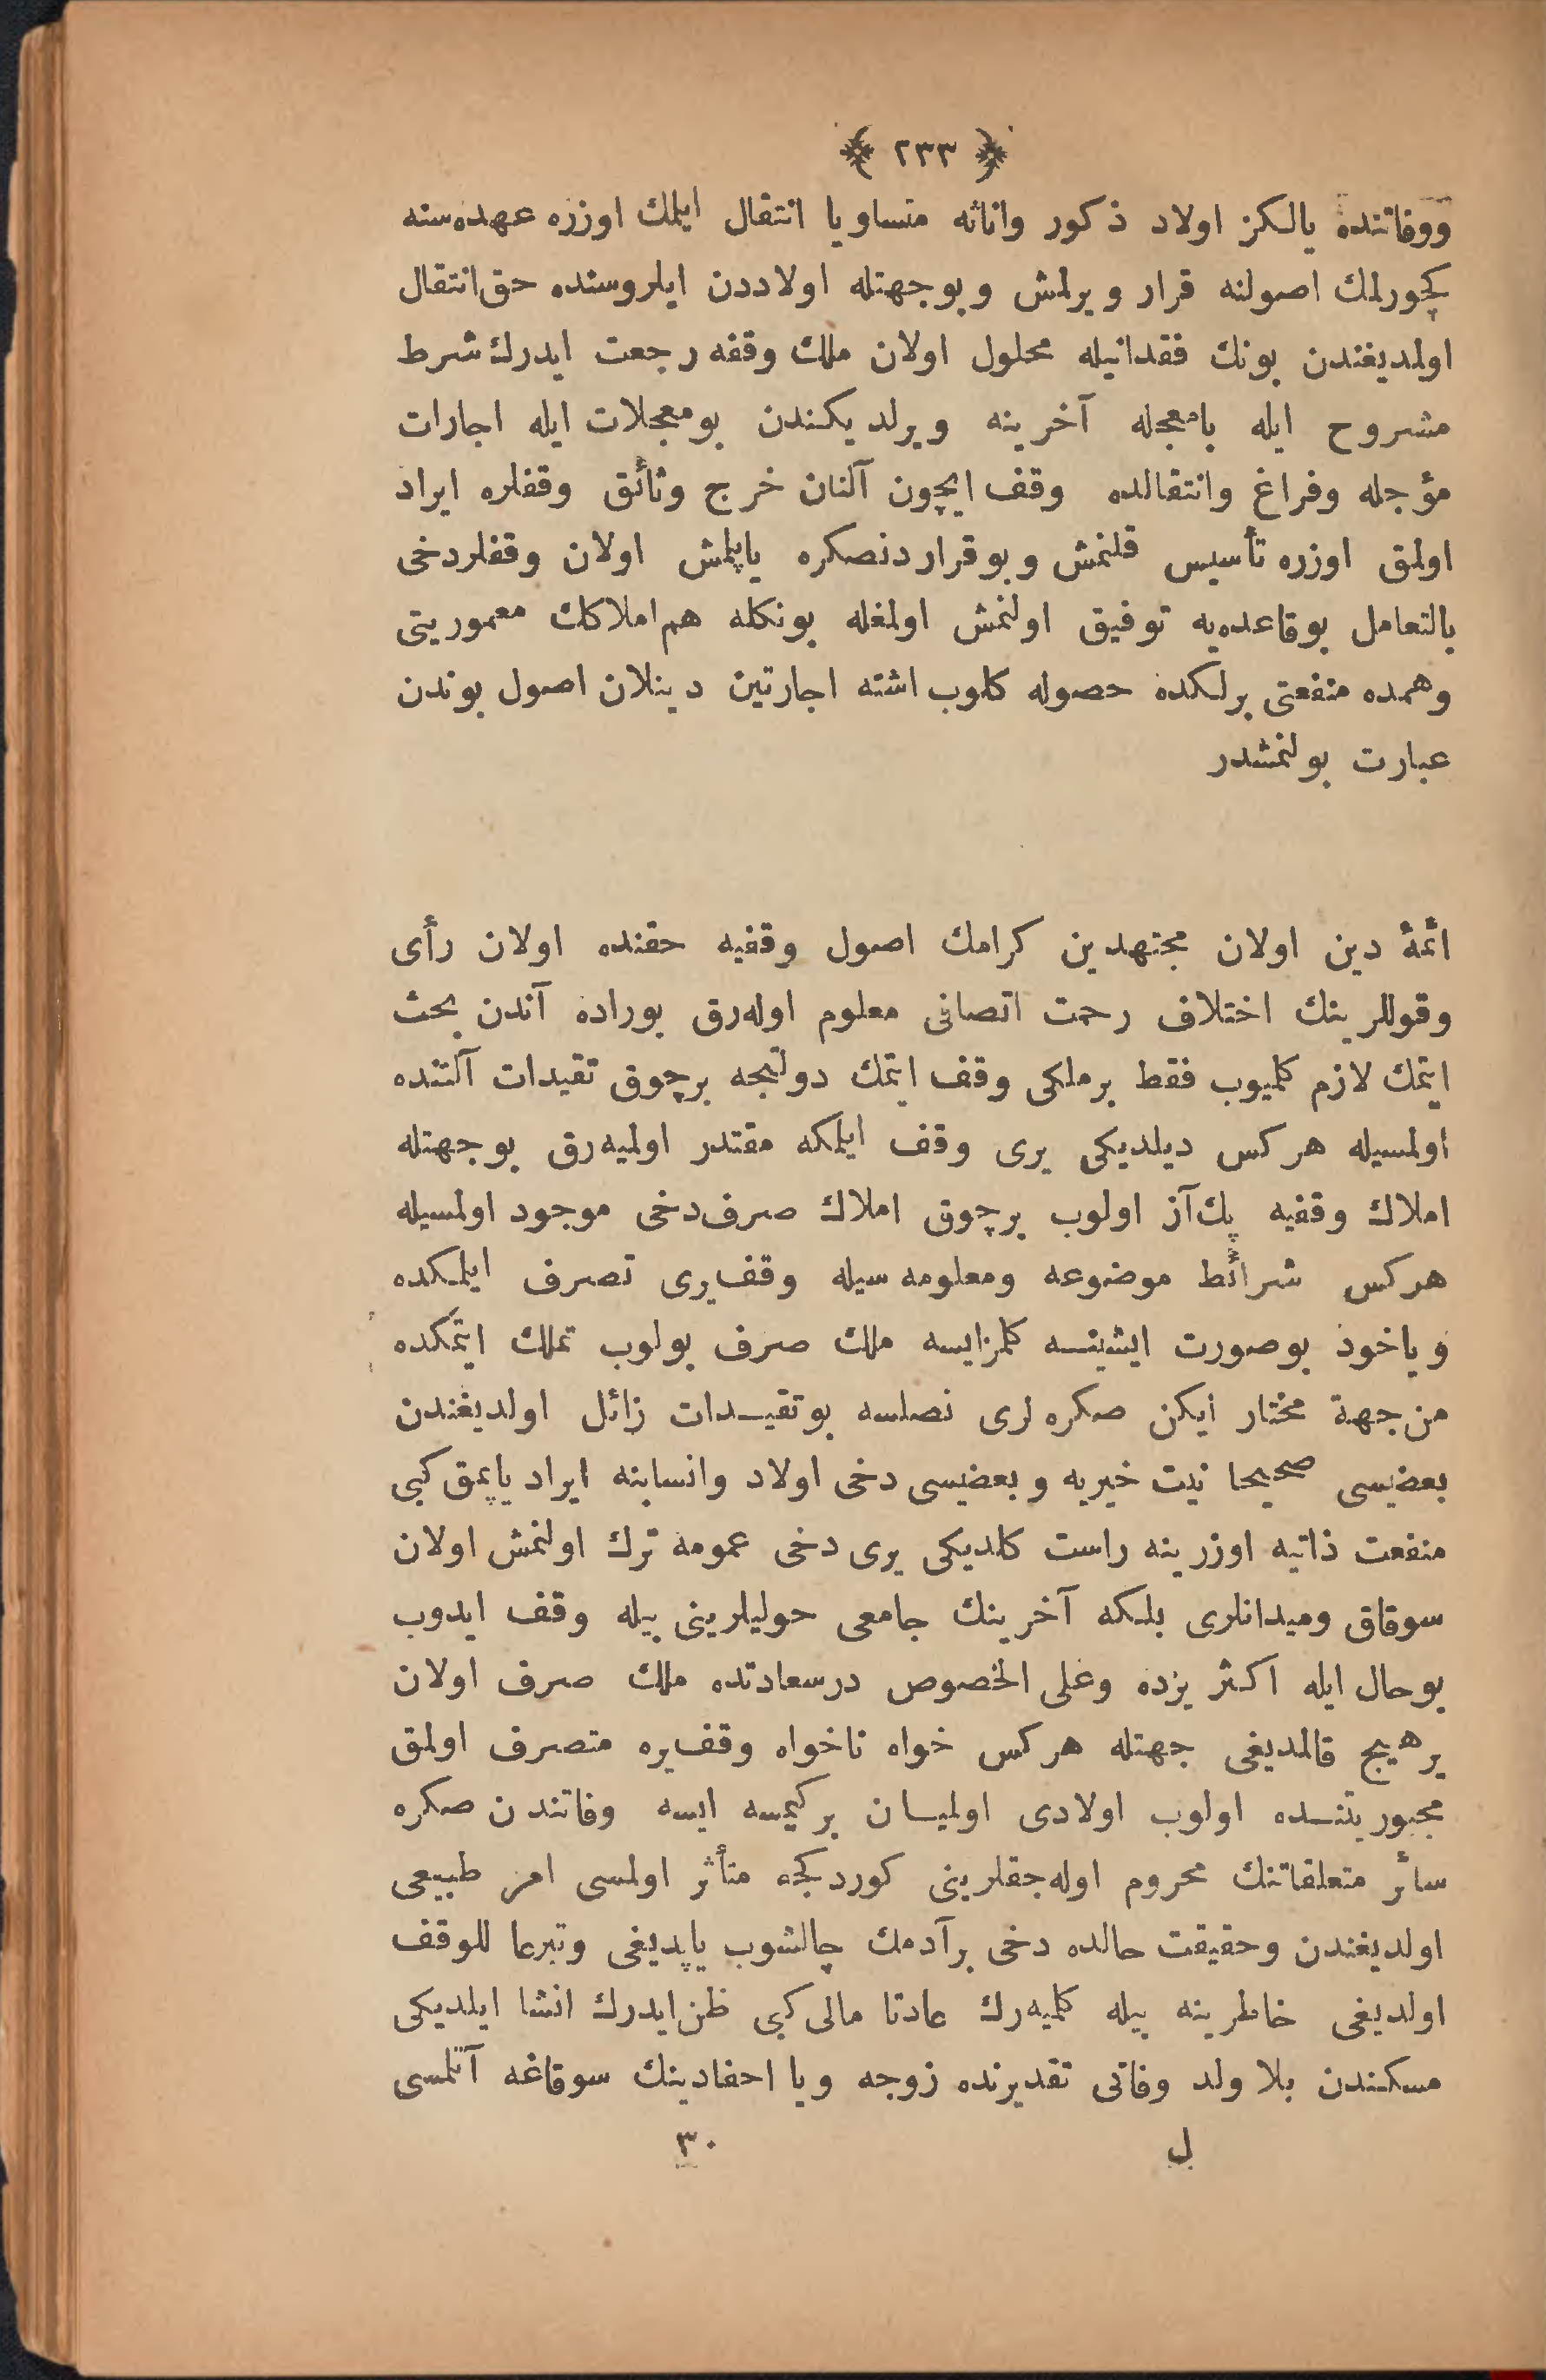 ﴿ ٢٣٣ ﴾
ووفاتنده يالكز اولاد ذكور واناثه متساويا انتقال ايلمك اوزره عهده‌سنه
كچورلمك اصولنه قرار ويرلمش وبوجهتله اولاددن ايلروسنده حق انتقال
اولمديغندن بونك فقدانيله محلول اولان ملك وقفه رجعت ايدرك شرط
مشروح ايله بامعجله آخرينه ويرلديكندن بومعجلات ايله اجارات
مؤجله وفراغ وانتقالده وقف ايچون آلنان خرج وثائق وقفلره ايراد
اولمق اوزره تأسيس قلنمش وبوقراردنصكره ياپلمش اولان وقفلردخى
بالتعامل بوقاعده‌يه توفيق اولنمش اولمغله بونكله هم املاكك معموريتى
وهمده منفعتى برلكده حصوله كلوب اشته اجارتين دينلان اصول بوندن
عبارت بولنمشدر
ائمۀ دين اولان مجتهدين كرامك اصول وقفيه حقنده اولان رأى
وقوللرينك اختلاف رحمت اتصافى معلوم اوله‌رق بوراده آندن بحث
ايتمك لازم كلميوب فقط برملكى وقف ايتمك دولتجه برچوق تقيدات آلتنده
اولمسيله هركس ديلديكى يرى وقف ايلمكه مقتدر اوليه‌رق بوجهتله
املاك وقفيه پك آز اولوب برچوق املاك صرف دخى موجود اولمسيله
هركس شرائط موضوعه ومعلومه سيله وقف يرى تصرف ايلمكده
وياخود بوصورت ايشينسه كلمزايسه ملك صرف بولوب تملك ايتمكده
من جهة مختار ايكن صكره لرى نصلسه بوتقيدات زائل اولديغندن
بعضيسى صحيحا نيت خيريه وبعضيسى دخى اولاد وانسابنه ايراد ياپمق كبى
منفعت ذاتيه اوزرينه راست كلديكى يرى دخى عمومه ترك اولنمش اولان
سوقاق وميدانلرى بلكه آخرينك جامعى حوليلرينى بيله وقف ايدوب
بوحال ايله اكثر يرده وعلى الخصوص درسعادتده ملك صرف اولان
يرهيچ قالمديغى جهتله هركس خواه ناخواه وقف يره متصرف اولمق
مجبوريتنده اولوب اولادى اوليان بركيمسه ايسه وفاتندن صكره
سائر متعلقاتنك محروم اوله‌جقلرينى كوردكجه متأثر اولمسى امر طبيعى
اولديغندن وحقيقت حالده دخى برآدمك چالشوب ياپديغى وتبرعا للوقف
اولديغى خاطرينه بيله كليه‌رك عادتا مالى كبى ظن ايدرك انشا ايلديكى
مسكنندن بلا ولد وفاتى تقديرنده زوجه ويا احفادينك سوقاغه آتلمسى
ل ٣٠